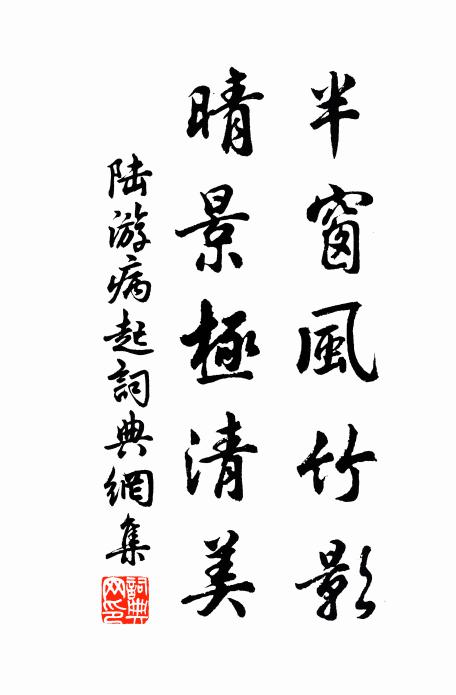 半窗風竹影
晴景極清美
陆游病起詞典網集
詞典网印